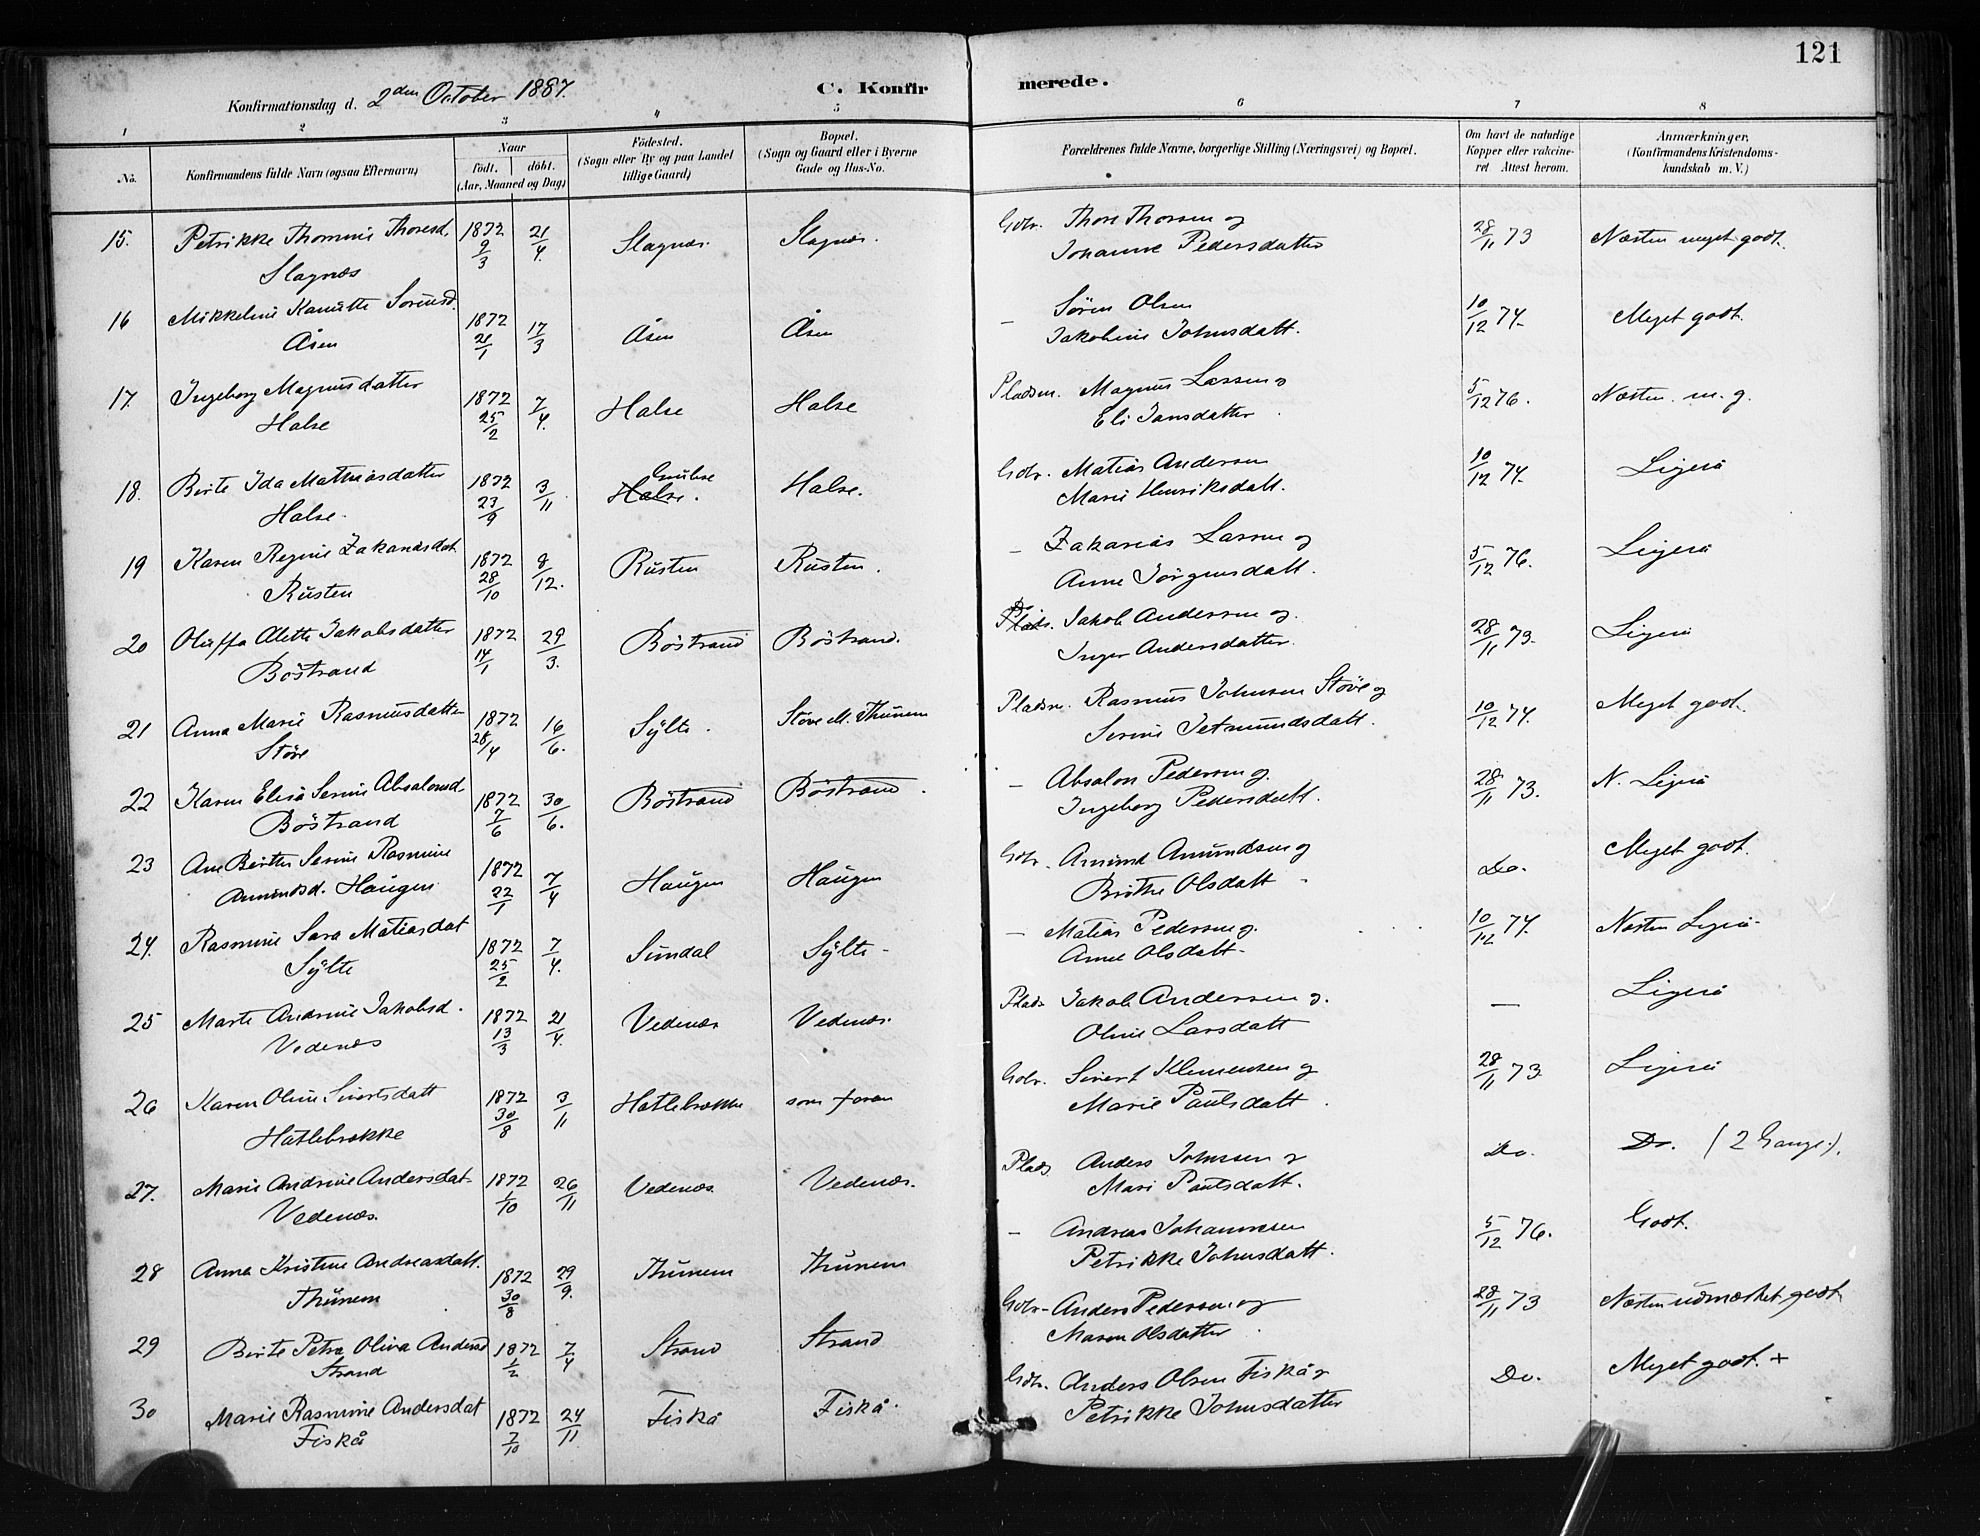 121
Konfirmationsdag d. 2den October 1887.
C. Konfirmerede.
1 2 3 4 5 6 7 8
No.
Konfirmandens fulde Navn (ogsaa Efternavn)
Naar
født. døbt.
(Aar, Maaned og Dag)
Födested.
(Sogn eller By og paa Landet
tillige Gaard)
Bopæl.
(Sogn og Gaard eller i Byerne
Gade og Hus-No.
Forældrenes fulde Navne, borgerlige Stilling (Næringsvei) og Bopæl.
Om havt de naturlige
Kopper eller vakcine-
ret Attest herom.
Anmærkninger,
(Konfirmandens Kristendoms-
kundskab m. V.)
15. Petrikke Thomine Thoresd. 1872 21/4 Slagnæs. Slagnæs. Gbr. Thore Thorsen og 28/11 73 Næsten meget godt.
Slagnæs 9/3 Johanne Pedersdatter
16 Mikkeline Kanutte Sörensd. 1872 17/3 Åsen Åsen — Sören Olsen 10/12 74. Meget godt.
Åsen 21/1 Jakobine Johnsdatt.
17. Ingeborg Magnusdatter 1872 7/4. Halse Halse Pladsm. Magnus Larsen og 5/12 76. Næsten m. g.
Halse 25/2 Eli Jansdatter
18. Berte Ida Mathiasdatter 1872 3/11 Halse. Halse. Gbr. Matias Andersen 10/12 74. Ligeså
Halse. 23/9 Marie Henriksdatt.
19 Karen Regine Zakariasdat 1872 8/12. Rusten Rusten. — Zakarias Larsen og 5/12 76. Ligeså
Rusten 28/10 Anne Jörgensdatt.
20 Oluffa Alette Jakobsdatter 1872 29/3. Böstrand Böstrand. Plads. Jakob Andersen og. 28/11 73. Ligeså
Böstrand 14/1 Inger Andersdatter.
21 Anna Marie Rasmusdatter 1872 16/6. Sylte. Støve M. Thunem Pladsm. Rasmus Johnsen Støve og 10/12 74. Meget godt.
Støve 28/4 Serine Jetmundsdatt.
22 Karen Elisa Serine Absalonsd 1872 30/6. Böstrand Böstrand. — Absalon Pedersen og. 28/11 73. N. Ligeså
Böstrand 7/6 Ingeborg Pedersdatt.
23 Ane Berthe Serine Rasmine 1872 7/4 Haugen Haugen Gbr. Amund Amundsen og Do. Meget godt.
Amundsd. Haugen 22/1 Brithe Olsdatt
24. Rasmine Sara Matiasdat 1872 7/4. Sundal Sylte — Matias Pedersen og. 10/12 74. Næsten Ligeså
Sylte 25/2 Anne Olsdatt
25 Marte Andrine Jakobsd. 1872 21/4. Vedenæs Vedenæs. Plads Jakob Andersen og. — Ligeså
Vedenæs 13/3 Oline Larsdatt
26 Karen Oline Sivertsdatt 1872 3/11 Hatlebrekke som foran Gbr. Sivert Klemensen og 28/11 73 Ligeså
Hatlebrekke 30/8 Marie Paulsdatt.
27. Marie Andrine Andersdat 1872 26/11 Vedenæs Vedenæs. Plads Anders Johnsen og Do. Do. (2 Gange).
Vedenæs. 1/10 Mari Paulsdatt.
28 Anna Kristine Andreasdatt. 1872 29/9. Thunem Thunem — Andreas Johannesen 5/12 76. Godt.
Thunem 30/8 Petrikke Johnsdatt.
29 Berte Petra Oliva Andersd 1872 7/4 Strand Strand Gbr. Anders Pedersen og 28/11 73 Næsten udmærket godt
Strand 1/2 Maren Olsdatter
30 Marie Rasmine Andersdat 1872 24/11 Fiskå Fiskå. Gbr. Anders Olsen Fiskå og Do. Meget godt. +
Fiskå 7/10 Petrikke Johnsdatter